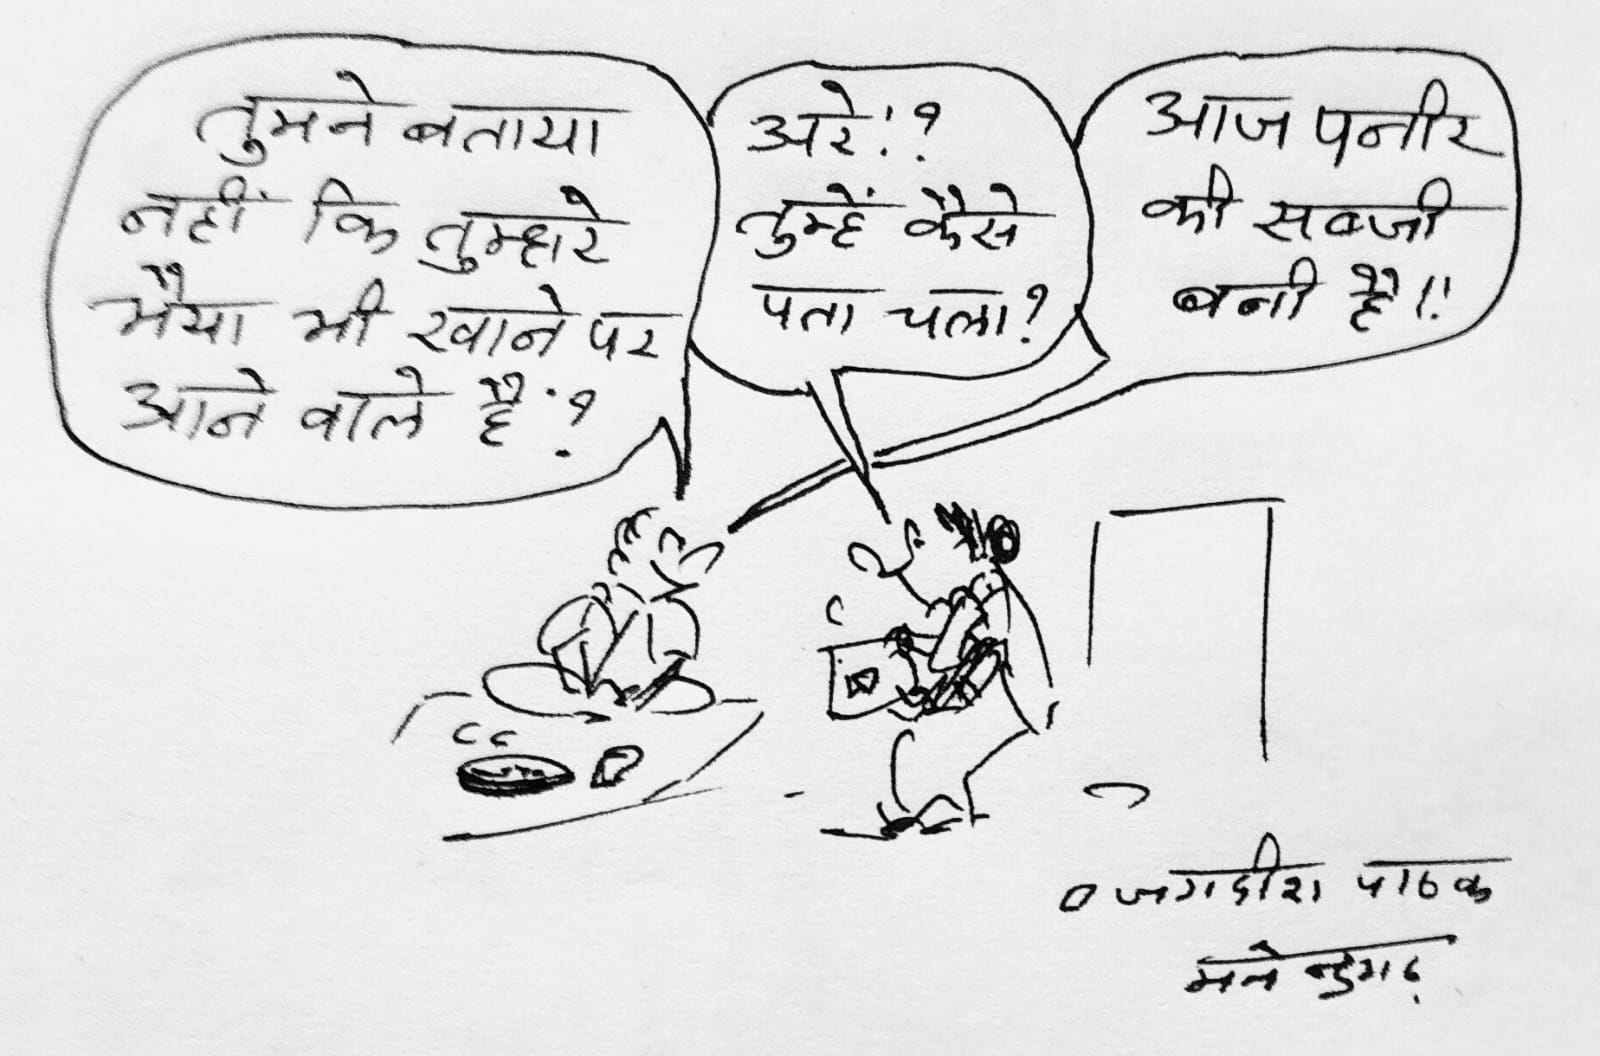 तुमने बताया
नहीं कि तुम्हारे
भैया भी खाने पर
आने वाले हैं?
अरे!?
तुम्हें कैसे
पता चला?
आज पनीर
की सब्जी
बनी है!!
जगदीश पाठक
मनेन्द्रगढ़